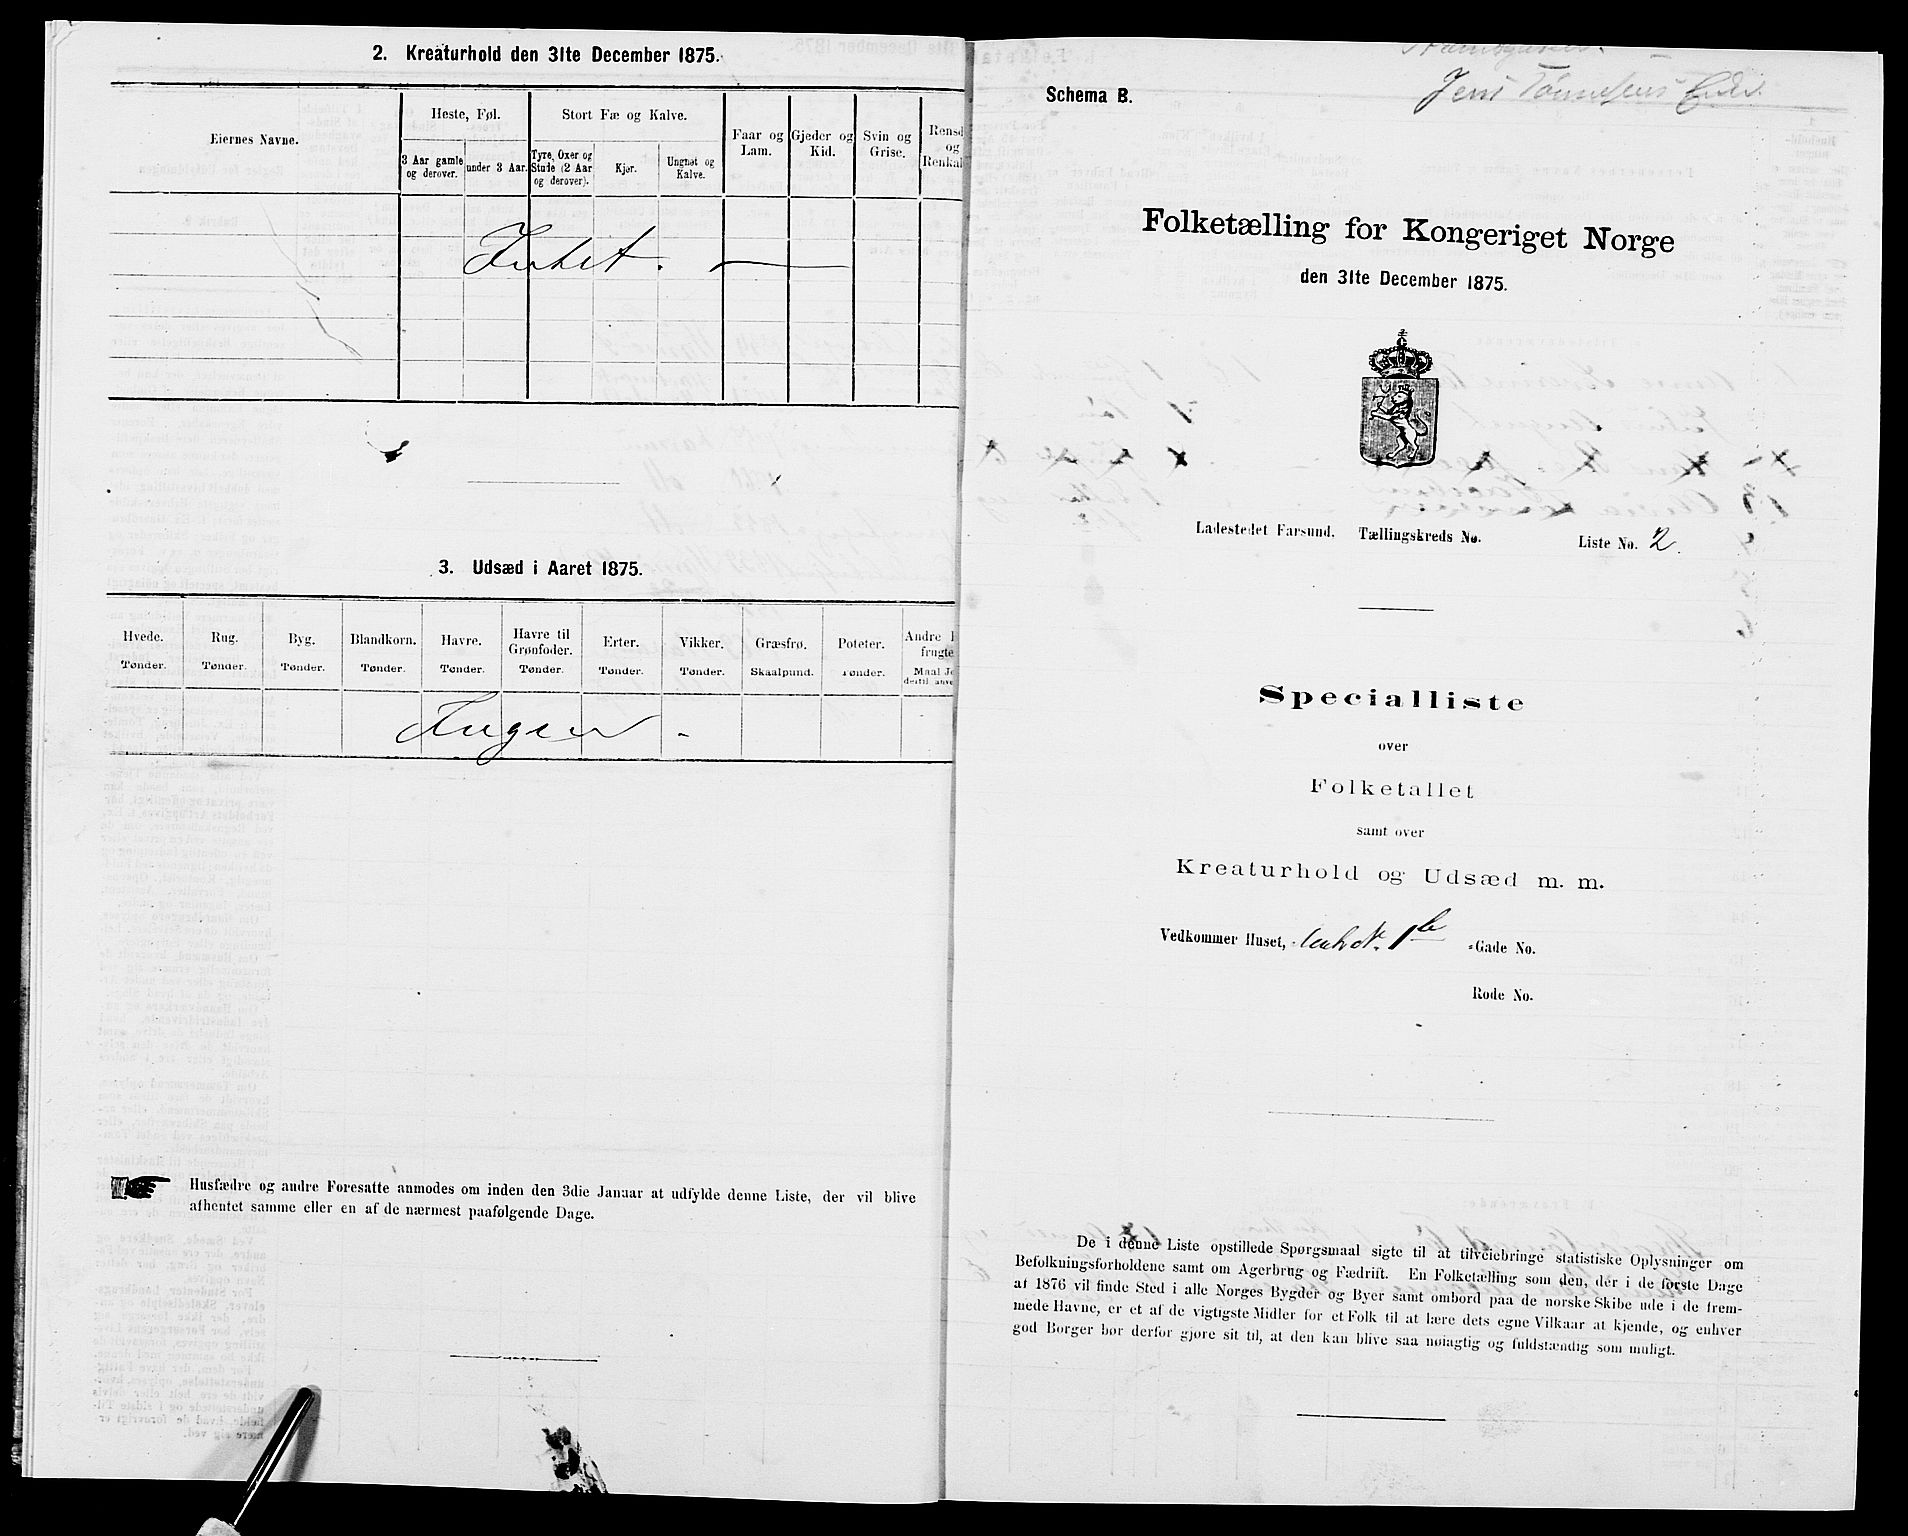 2. Kreaturhold den 31te December 1875.
Eiernes Navne.
Heste, Føl.
Stort Fæ og Kalve.
Faar og Lam.
Gjeder og Kid.
Svin og Grise.
og
3 Aar gamle og derover.
under 3 Aar.
Tyre, Oxer og Stude (2 Aar og derover).
Kjør.
Ungnøt og Kalve.
Intet. —
3. Udsæd i Aaret 1875.
Hvede. Rug. Byg. Blandkorn. Havre. Havre til Grønfoder. Erter. Vikker. Græsfrø. Poteter. Andre
Tønder. Tønder. Tønder. Tønder. Tønder. Tønder. Tønder. Tønder. Skaalpund. Tønder. Maal
Ingen -
Husfædre og andre Foresatte anmodes om inden den 3die Januar at udfylde denne Liste, der vil blive
afhentet samme eller en af de nærmest paafølgende Dage.
Jens Tønnesens
Schema B.
Folketælling for Kongeriget Norge
den 31te December 1875.
Ladestedet Farsund. Tællingskreds No. Liste No. 2.
Specialliste
over
Folketallet
samt over
Kreaturhold og Udsæd m. m.
Vedkommer Huset, Matr. No. 1b -Gade No.
Rode No.
De i denne Liste opstillede Spørgsmaal sigte til at tilveiebringe statistiske Oplysninger om
Befolkningsforholdene samt om Agerbrug og Fædrift. En Folketælling som den, der i de første Dage
af 1876 vil finde Sted i alle Norges Bygder og Byer samt ombord paa de norske Skibe ude i de frem-
mede Havne, er et af de vigtigste Midler for et Folk til at lære dets egne Vilkaar at kjende, og enhver
god Borger bør derfor gjøre sit til, at den kan blive saa nøiagtig og fuldstændig som muligt.